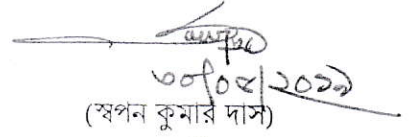 ৩০/০৫/২০১৯
(স্বপন কুমার দাস)